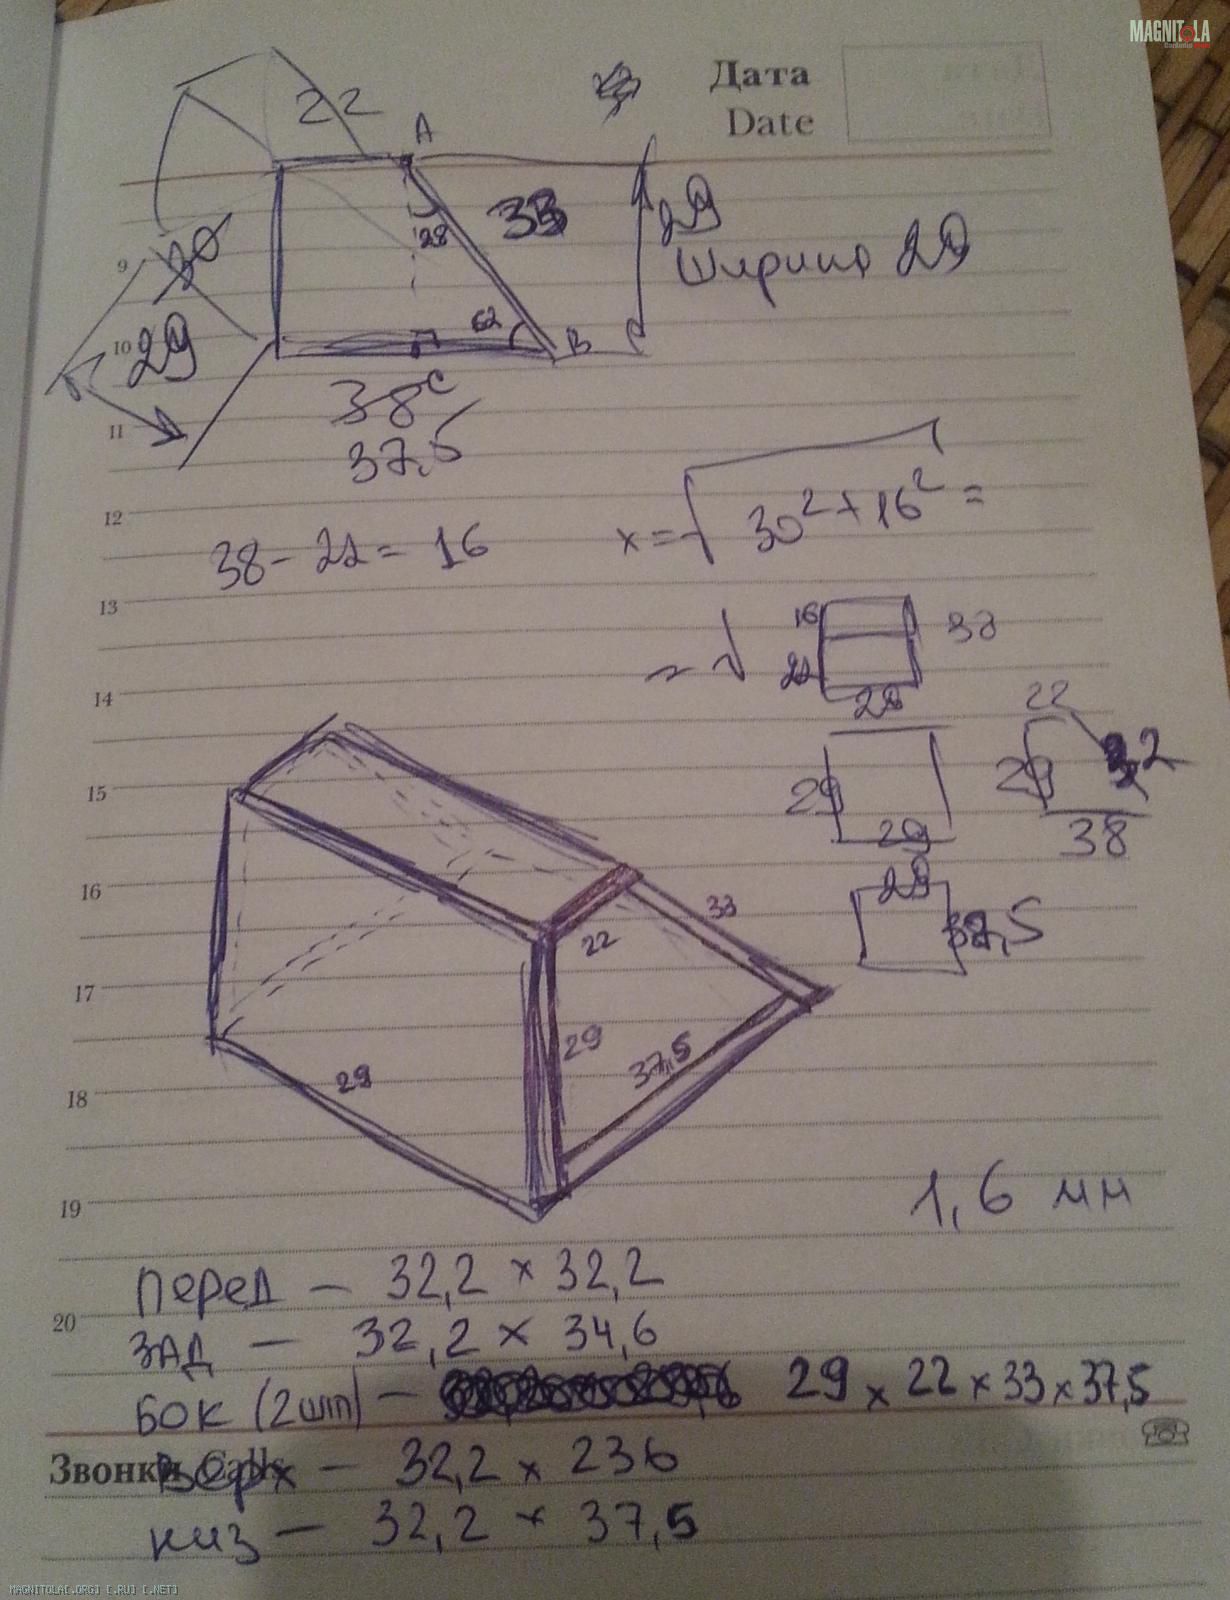 MAGNITOLA
Дата
Date
22
A
33
28
29
Ширина 29
9
30
29
62
B
10
38
37,5
11
12
38 - 22 = 16
x = √ 30² + 16² =
13
16
38
= √
22
14
29
22
15
29
29
32
29
38
16
29
33
37,5
22
17
29
37,5
29
18
1,6 мм
19
перед — 32,2 × 32,2
20
зад — 32,2 × 34,6
бок (2шт) — 29 × 22 × 33 × 37,5
Звонки Calls
верх — 32,2 × 236
низ — 32,2 × 37,5
MAGNITOLA[.ORG] [.RU] [.NET]